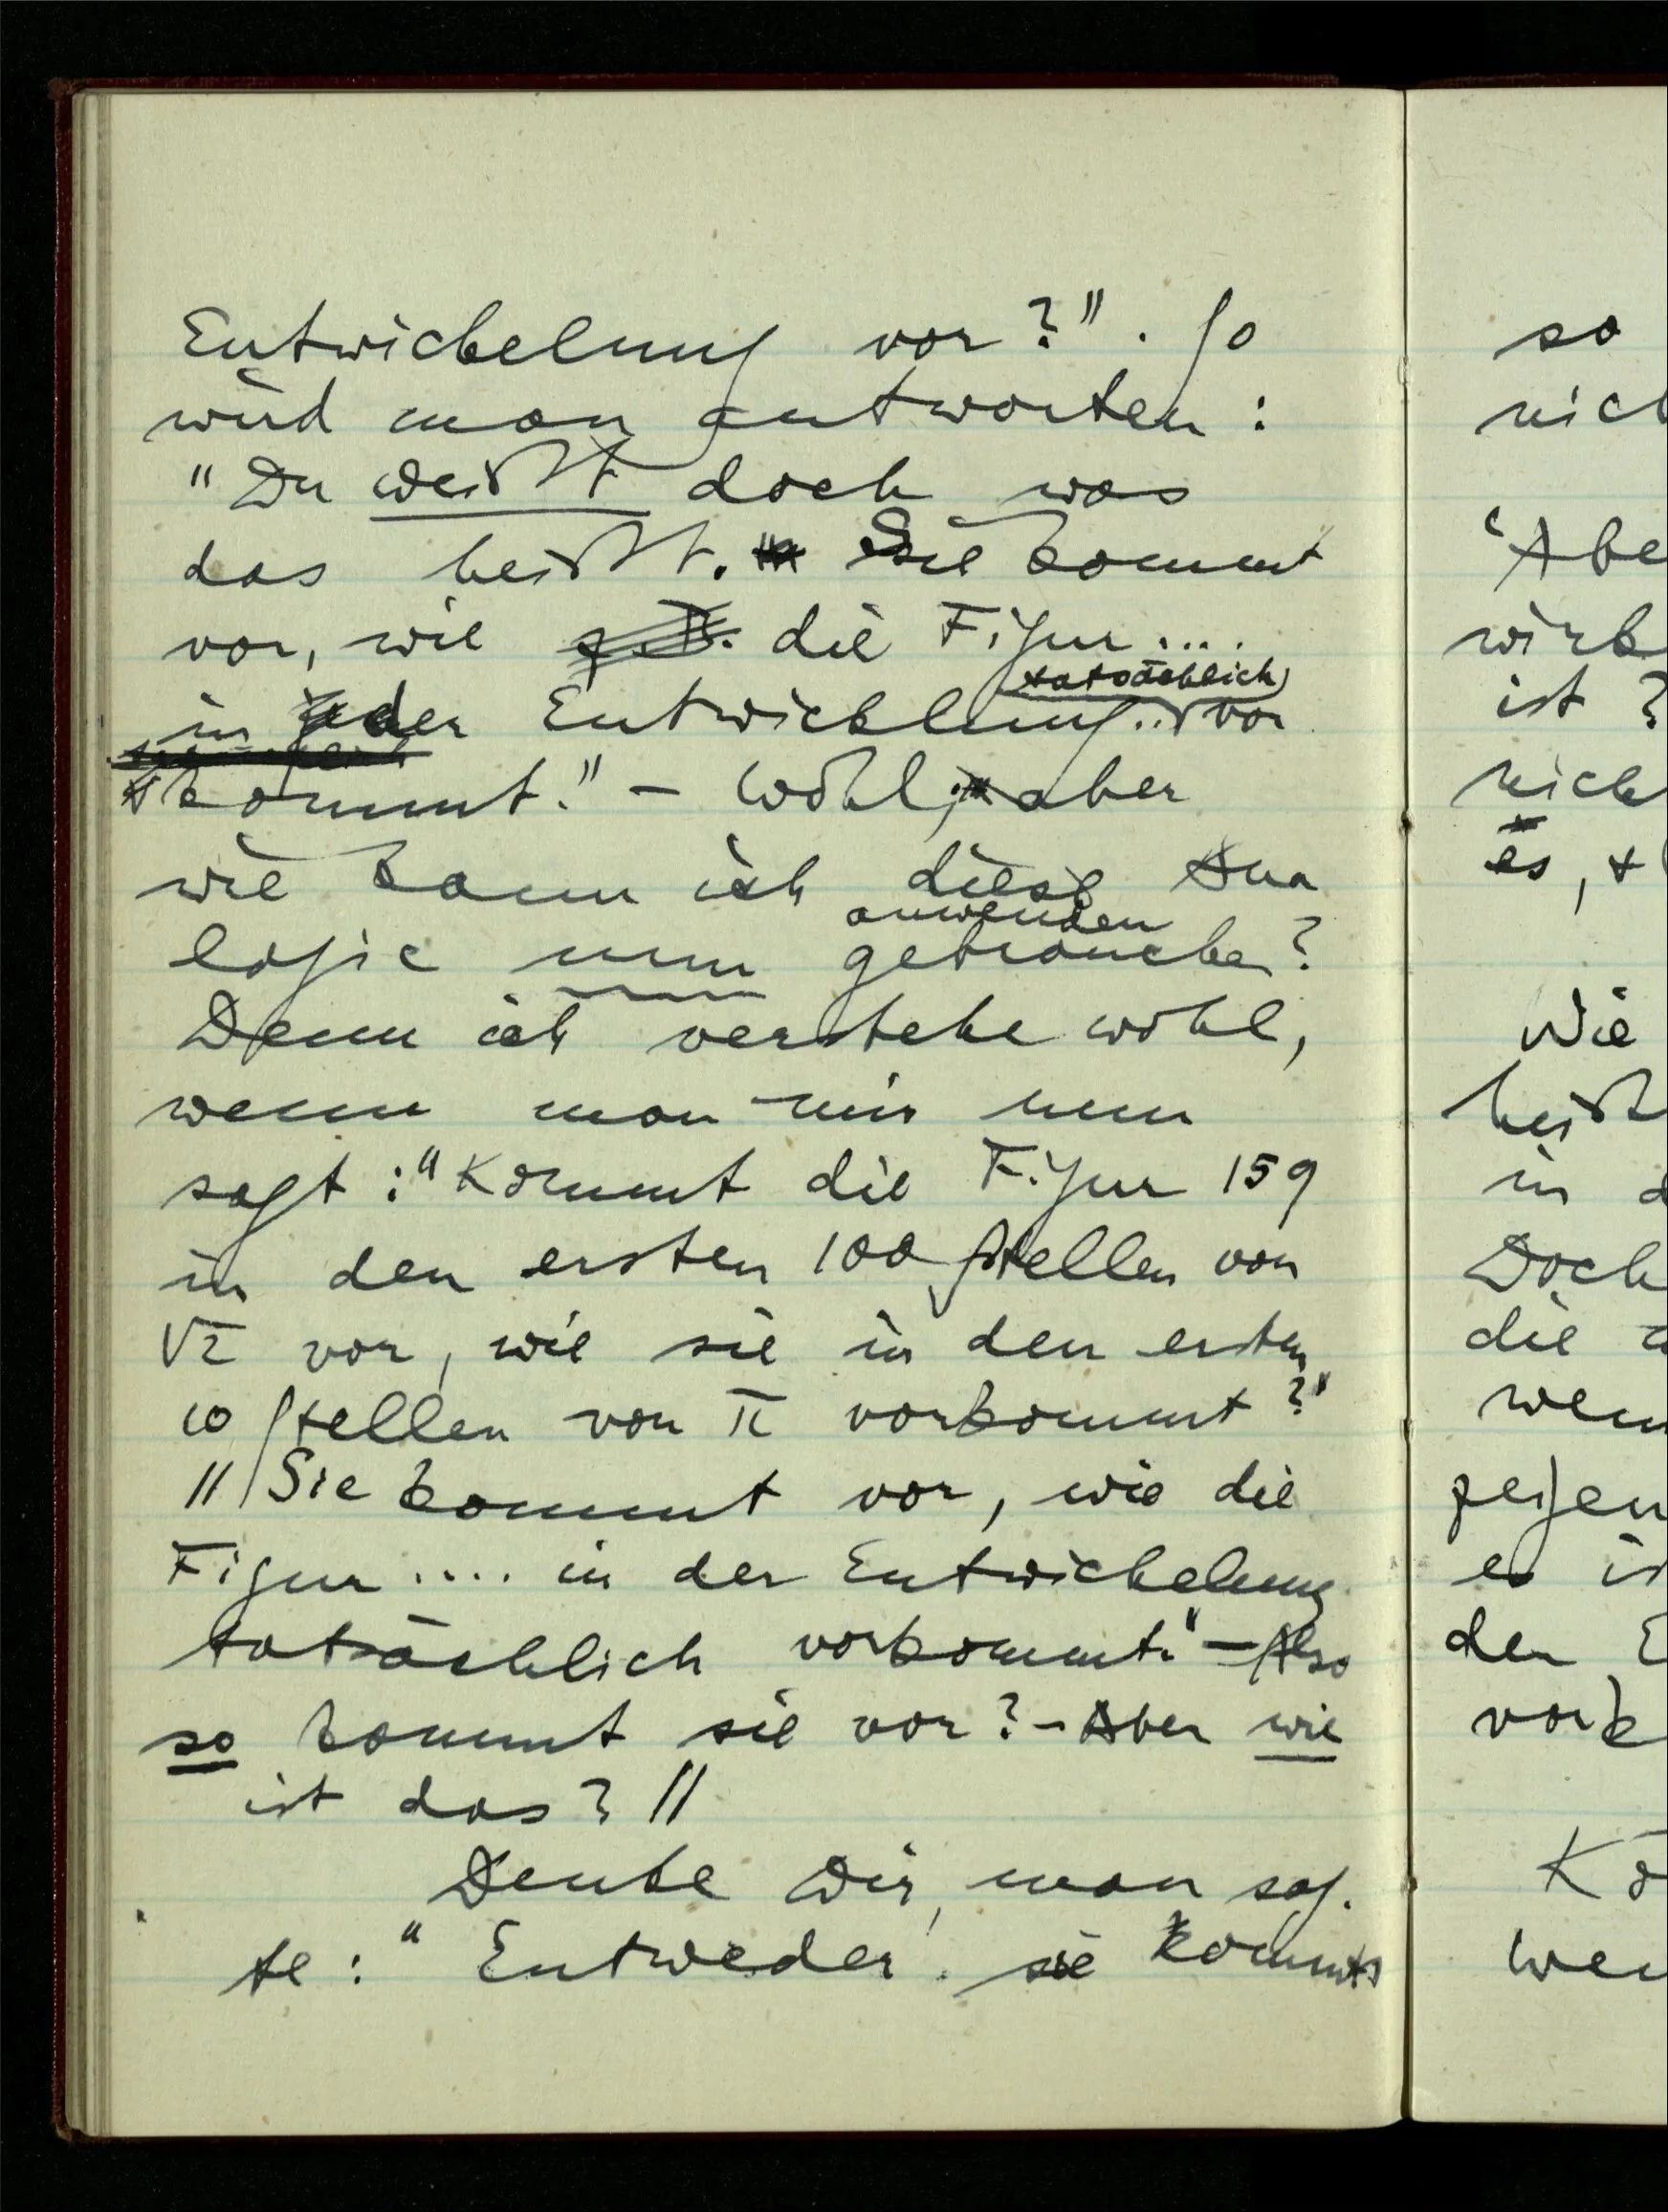 Entwickelung vor?". So
wird man antworten:
"Du weißt doch was
das heißt. Sie kommt
vor, wie z.B. die Figur ....
tatsächlich
in der Entwicklung .. vor
kommt." – Wohl; aber
wie kann ich diese Ana
anwenden
logie nun gebrauchen?
Denn ich verstehe wohl,
wenn man mir nun
sagt: "Kommt die Figur 159
in den ersten 100 Stellen von
√2 vor, wie sie in den ersten
10 Stellen von π vorkommt?"
// Sie kommt vor, wie die
Figur .... in der Entwickelung
tatsächlich vorkommt." – Also
so kommt sie vor? – Aber wie
ist das? //
Denke Dir, man sag-
te: "Entweder sie kommt
so
nich
"Abe
wirk
ist ?
nich
es, +
Wie
heißt
in d
Doch
die
wen
gegen
es is
den E
vork
Kö
wen